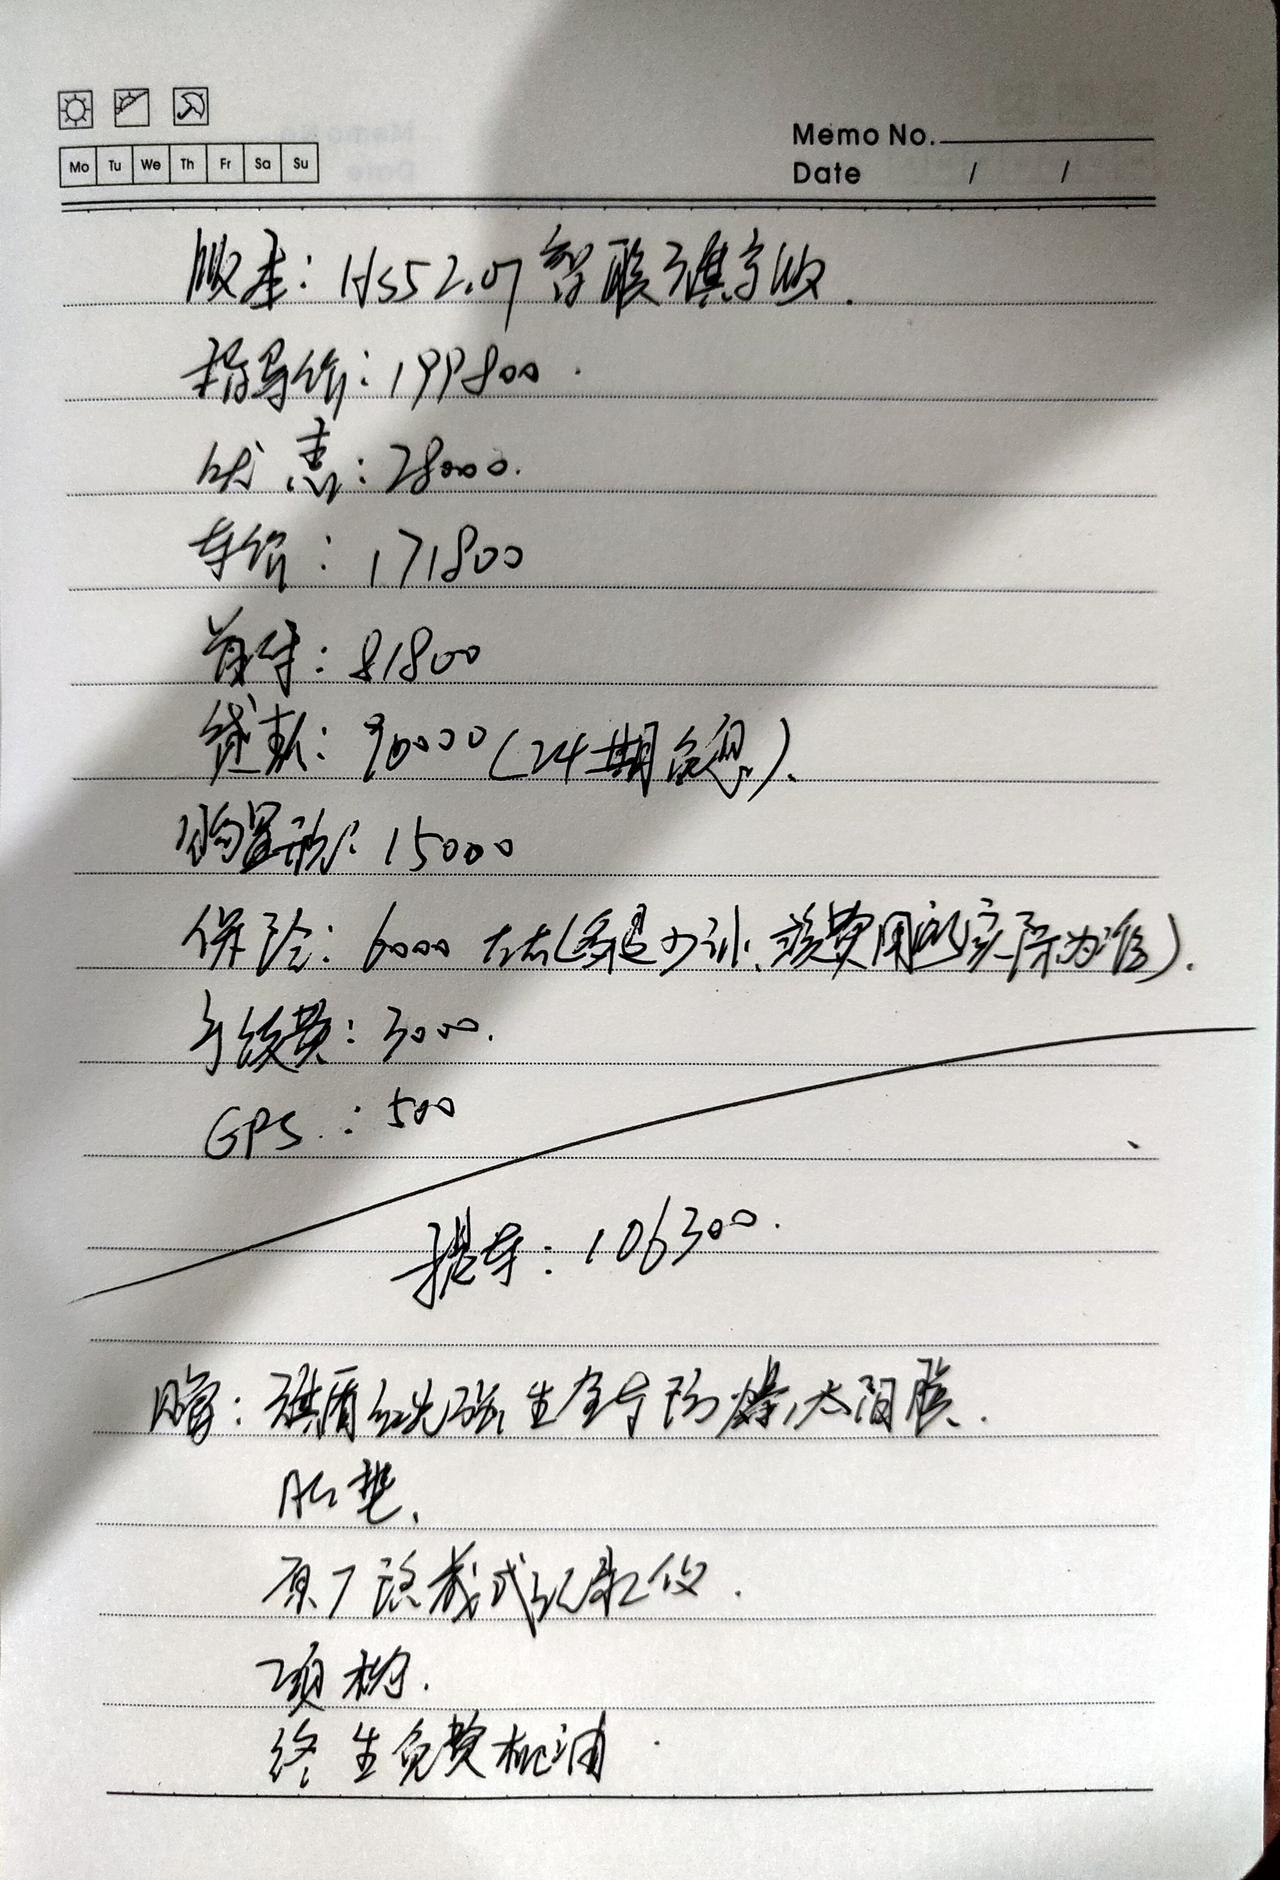 Mo Tu We Th Fr Sa Su
Memo No.
Date / /
版本：HS5 2.0T 智联旗享版.
指导价：199800.
优惠：28000.
车价：171800
首付：81800
贷款：90000（24期免息）、
购置税：15000
保险：6000左右（多退少补、该费用以实际为准）.
手续费：3000.
GPS：500
提车：106300.
赠：旗盾红先强生全车防爆太阳膜.
脚垫、
原厂隐藏式记录仪.
项枕.
终生免费机油.